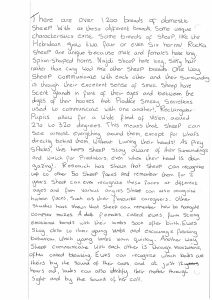 There are over 1200 breeds of domestic
sheep. With so these different breeds some unique
characteristics arise. Some breeds of sheep like the
Hebridean grow two, four or even six horns! Racka
Sheep are unique because male and females have long
spiral-shaped horns. Najdi sheep have long, silky hair
rather than curly wool like other sheep breeds.
Sheep communicate with each other and their surroundings
through their excellent sense of smell. Sheep have
scent glands in front of their eyes and between the
digits of their hooves that produce strong smells
used to communicate with one another. Rectangular
Pupils allow for a wide field of vision around
270 to 320 degrees. This means that sheep can
see almost everything around them except for what's
directly behind them without turning their heads! As prey
animals, this helps sheep stay aware of their surroundings
and watch for Predators, even when their head is down
grazing. Research has shown that sheep can recognise
up to other 50 sheep faces and remember them for 2
years. Sheep can even recognise these faces at different
ages and from various angles. Sheep can also recognise
human faces, such as their favourite caregivers. Other
studies have shown that sheep can remember how to navigate
complex mazes. Adult females, called ewes, form strong
emotional bonds with their lambs soon after birth. Ewes
stay close to their young lambs and encourage feeding
behaviour when young lambs learn quickly. Another way
sheep communicate with each other is through vocalisation,
often called bleating. Ewes can recognise which lambs are
theirs by the sound of their calls and at just
hours old, lambs can also identify their mother through
sight and by the sound of her call.